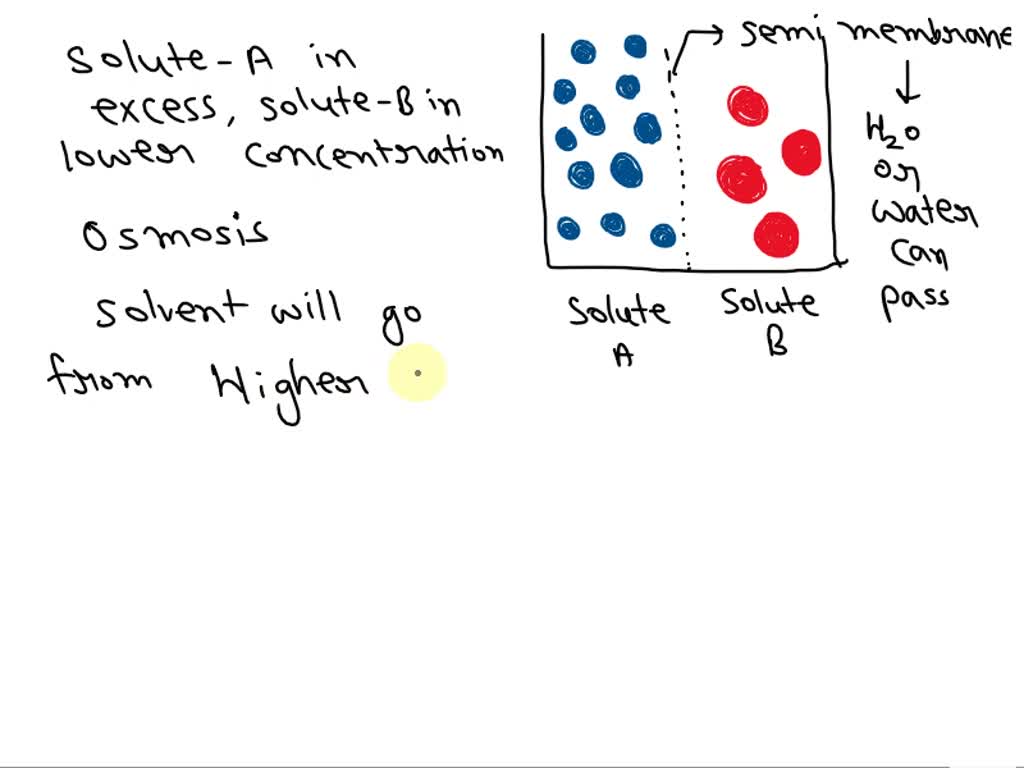 Solute-A in
excess, solute-B in
lower concentration
Osmosis
Solvent will go
from Higher
semi membrane
H2O
or
water
can
pass
Solute
A
Solute
B